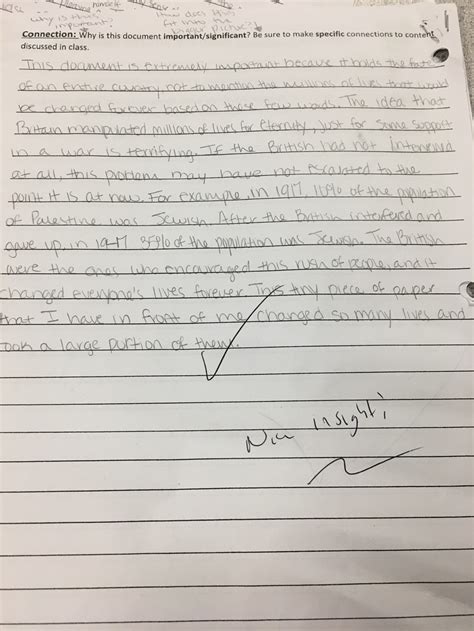 himself
why is this
important.
How does this
fit into the
bigger picture?
Connection: Why is this document important/significant? Be sure to make specific connections to content
discussed in class.
This document is extremely important because it holds the fate
of an entire country not to mention the millions of lives that would
be changed forever based on these few words. The idea that
Britain manipulated millions of lives for eternity, just for some support
in a war is terrifying. If the British had not intervened
at all, this problem may have not escalated to the
point it is at now. For example, in 1917, of the population
of Palestine was Jewish. After the British interfered and
gave up, in 1947 35% of the population was Jewish. The British
were the ones who encouraged this rush of people, and it
changed everyone's lives forever. This tiny piece of paper
that I have in front of me changed so many lives and
took a large portion of them.
Nice insight!